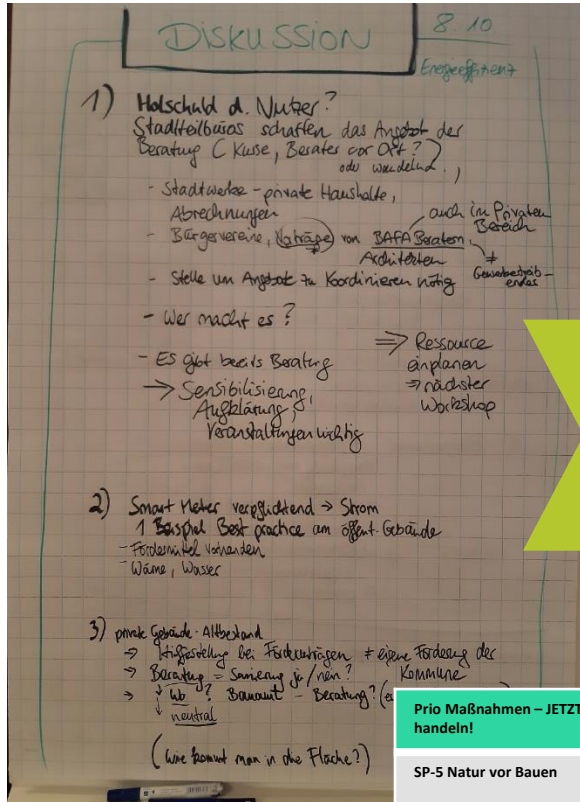 DISKUSSION
8.10
Energieeffizienz
1) Holschuld d. Nutzer?
Stadtteilbüros schaffen das Angebot der
Beratung ( Kurse, Berater vor Ort?)
oder wandelnd..,
- Stadtwerke - private Haushalte,
Abrechnungen
auch im Privaten
Bereich
- Bürgervereine, Vorträge von BAFA Beratern,
Architekten
≠ Gewerbetreib-
endes
- Stelle um Angebote zu Koordinieren nötig
- Wer macht es?
- ES gibt bereits Beratung
→ Sensibilisierung,
Aufklärung,
Veranstaltungen wichtig
⇒ Ressource
einplanen
⇒ nächster
Workshop
2) Smart Meter verpflichtend → Strom
1 Beispiel Best practice am öffent. Gebäude
- Fördermittel vorhanden
- Wärme, Wasser
3) private Gebäude - Altbestand
⇒ Hilfestellung bei Förderanträgen ≠ eigene Förderung der
Kommune
⇒ Beratung = Sanierung ja/nein?
⇒ Wo? Bauamt - Beratung?
↓ neutral
(Wie kommt man in die Fläche?)
Prio Maßnahmen – JETZT
handeln!
SP-5 Natur vor Bauen